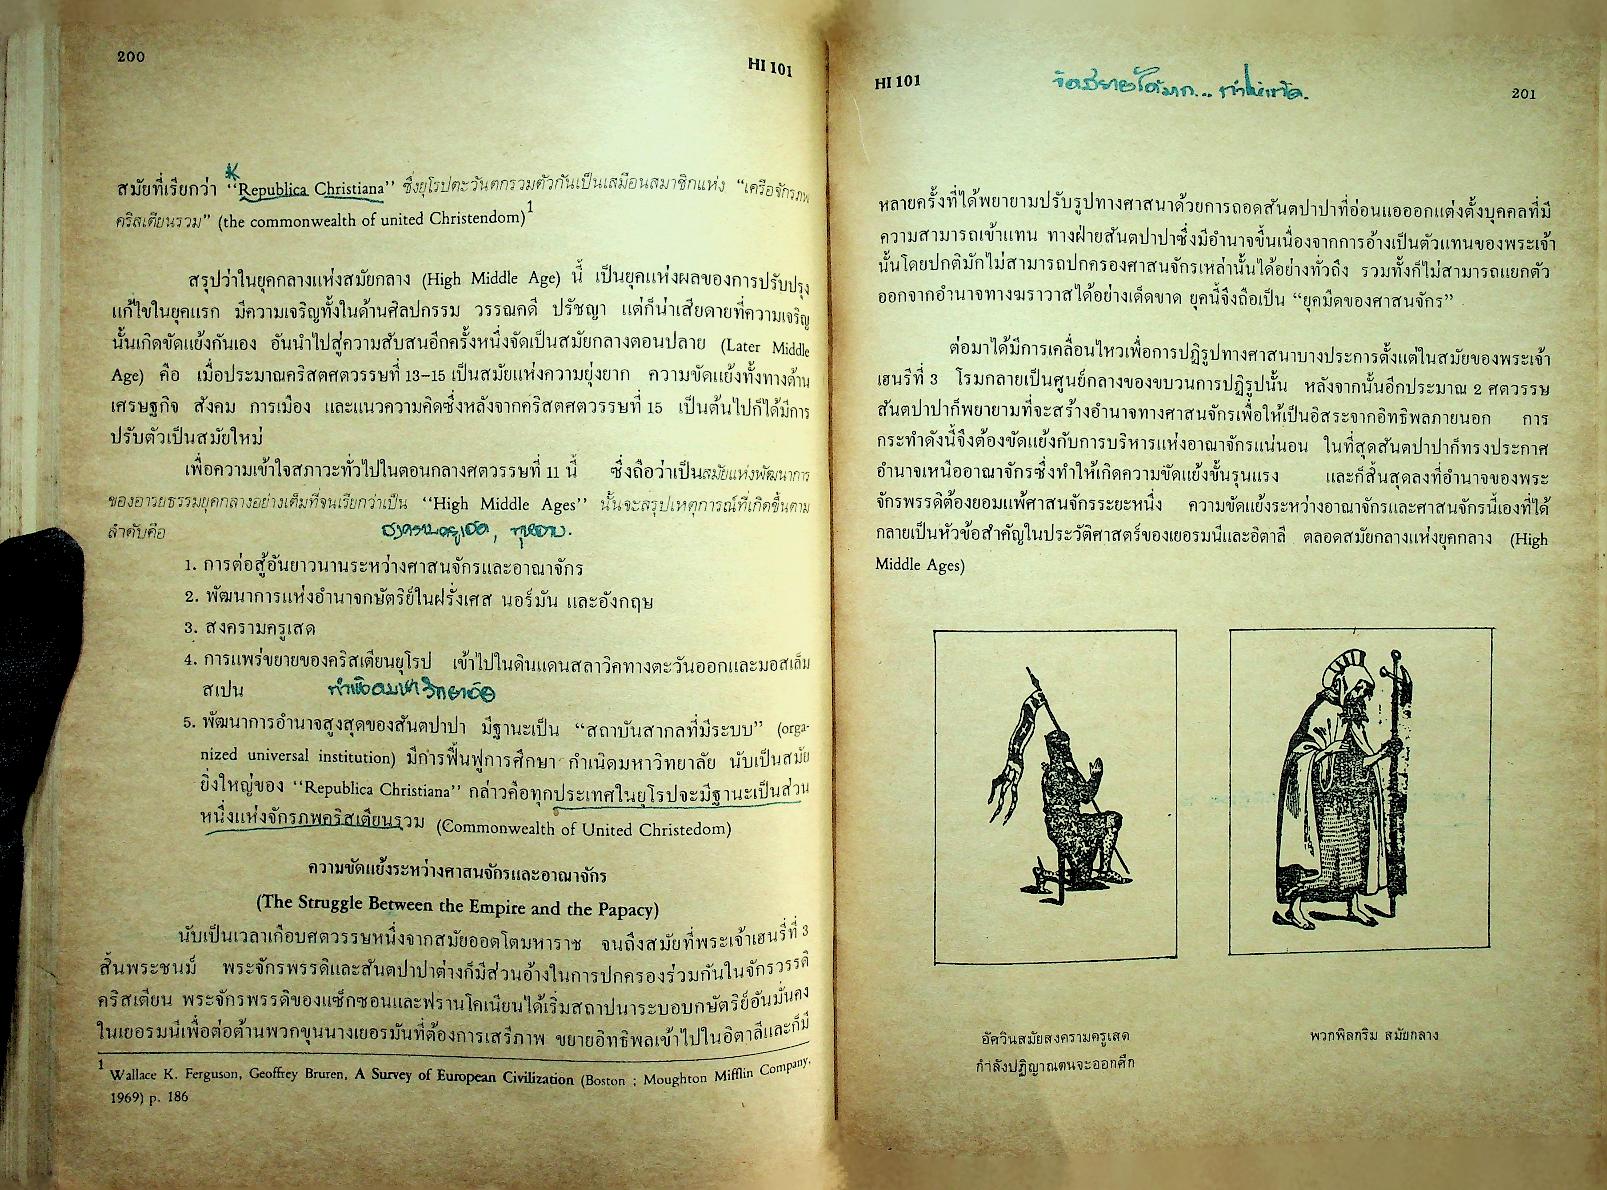 200
HI 101
สมัยที่เรียกว่า “Republica Christiana” ซึ่งยุโรปตะวันตกรวมตัวกันเป็นเสมือนสมาชิกแห่ง “เครือจักรภพ
คริสเตียนรวม” (the commonwealth of united Christendom)1
สรุปว่าในยุคกลางแห่งสมัยกลาง (High Middle Age) นี้ เป็นยุคแห่งผลของการปรับปรุง
แก้ไขในยุคแรก มีความเจริญทั้งในด้านศิลปกรรม วรรณคดี ปรัชญา แต่ก็น่าเสียดายที่ความเจริญ
นั้นเกิดขัดแย้งกันเอง อันนำไปสู่ความสับสนอีกครั้งหนึ่งจัดเป็นสมัยกลางตอนปลาย (Later Middle
Age) คือ เมื่อประมาณคริสตศตวรรษที่ 13–15 เป็นสมัยแห่งความยุ่งยาก ความขัดแย้งทั้งทางด้าน
เศรษฐกิจ สังคม การเมือง และแนวความคิดซึ่งหลังจากคริสตศตวรรษที่ 15 เป็นต้นไปก็ได้มีการ
ปรับตัวเป็นสมัยใหม่
เพื่อความเข้าใจสภาวะทั่วไปในตอนกลางศตวรรษที่ 11 นี้ ซึ่งถือว่าเป็นสมัยแห่งพัฒนาการ
ของอารยธรรมยุคกลางอย่างเต็มที่จนเรียกว่าเป็น “High Middle Ages” นั้นจะสรุปเหตุการณ์ที่เกิดขึ้นตาม
ลำดับคือ
สงครามครูเสด,
1. การต่อสู้อันยาวนานระหว่างศาสนจักรและอาณาจักร
2. พัฒนาการแห่งอำนาจกษัตริย์ในฝรั่งเศส นอร์มัน และอังกฤษ
3. สงครามครูเสด
4. การแพร่ขยายของคริสเตียนยุโรป เข้าไปในดินแดนสลาวิคทางตะวันออกและมอสเล็ม
สเปน
5. พัฒนาการอำนาจสูงสุดของสันตปาปา มีฐานะเป็น “สถาบันสากลที่มีระบบ” (orga-
nized universal institution) มีการฟื้นฟูการศึกษา กำเนิดมหาวิทยาลัย นับเป็นสมัย
ยิ่งใหญ่ของ “Republica Christiana” กล่าวคือทุกประเทศในยุโรปจะมีฐานะเป็นส่วน
หนึ่งแห่งจักรภพคริสเตียนรวม (Commonwealth of United Christedom)
ความขัดแย้งระหว่างศาสนจักรและอาณาจักร
(The Struggle Between the Empire and the Papacy)
นับเป็นเวลาเกือบศตวรรษหนึ่งจากสมัยออตโตมหาราช จนถึงสมัยที่พระเจ้าเฮนรี่ที่ 3
สิ้นพระชนม์ พระจักรพรรดิและสันตปาปาต่างก็มีส่วนอ้างในการปกครองร่วมกันในจักรวรรดิ
คริสเตียน พระจักรพรรดิของแซ็กซอนและฟรานโคเนียนได้เริ่มสถาปนาระบอบกษัตริย์อันมั่นคง
ในเยอรมนีเพื่อต่อต้านพวกขุนนางเยอรมันที่ต้องการเสรีภาพ ขยายอิทธิพลเข้าไปในอิตาลีและก็มี
1 Wallace K. Ferguson, Geoffrey Bruren, A Survey of European Civilization (Boston ; Moughton Mifflin Company,
1969) p. 186
HI 101
201
หลายครั้งที่ได้พยายามปรับรูปทางศาสนาด้วยการถอดสันตปาปาที่อ่อนแอออกแต่งตั้งบุคคลที่มี
ความสามารถเข้าแทน ทางฝ่ายสันตปาปาซึ่งมีอำนาจขึ้นเนื่องจากการอ้างเป็นตัวแทนของพระเจ้า
นั้นโดยปกติมักไม่สามารถปกครองศาสนจักรเหล่านั้นได้อย่างทั่วถึง รวมทั้งก็ไม่สามารถแยกตัว
ออกจากอำนาจทางฆราวาสได้อย่างเด็ดขาด ยุคนี้จึงถือเป็น “ยุคมืดของศาสนจักร”
ต่อมาได้มีการเคลื่อนไหวเพื่อการปฏิรูปทางศาสนาบางประการตั้งแต่ในสมัยของพระเจ้า
เฮนรี่ที่ 3 โรมกลายเป็นศูนย์กลางของขบวนการปฏิรูปนั้น หลังจากนั้นอีกประมาณ 2 ศตวรรษ
สันตปาปาก็พยายามที่จะสร้างอำนาจทางศาสนจักรเพื่อให้เป็นอิสระจากอิทธิพลภายนอก การ
กระทำดังนี้จึงต้องขัดแย้งกับการบริหารแห่งอาณาจักรแน่นอน ในที่สุดสันตปาปาก็ทรงประกาศ
อำนาจเหนืออาณาจักรซึ่งทำให้เกิดความขัดแย้งขั้นรุนแรง และก็สิ้นสุดลงที่อำนาจของพระ
จักรพรรดิต้องยอมแพ้ศาสนจักรระยะหนึ่ง ความขัดแย้งระหว่างอาณาจักรและศาสนจักรนี้เองที่ได้
กลายเป็นหัวข้อสำคัญในประวัติศาสตร์ของเยอรมนีและอิตาลี ตลอดสมัยกลางแห่งยุคกลาง (High
Middle Ages)
อัศวินสมัยสงครามครูเสด
กำลังปฏิญาณตนจะออกศึก
พวกพิลกริม สมัยกลาง